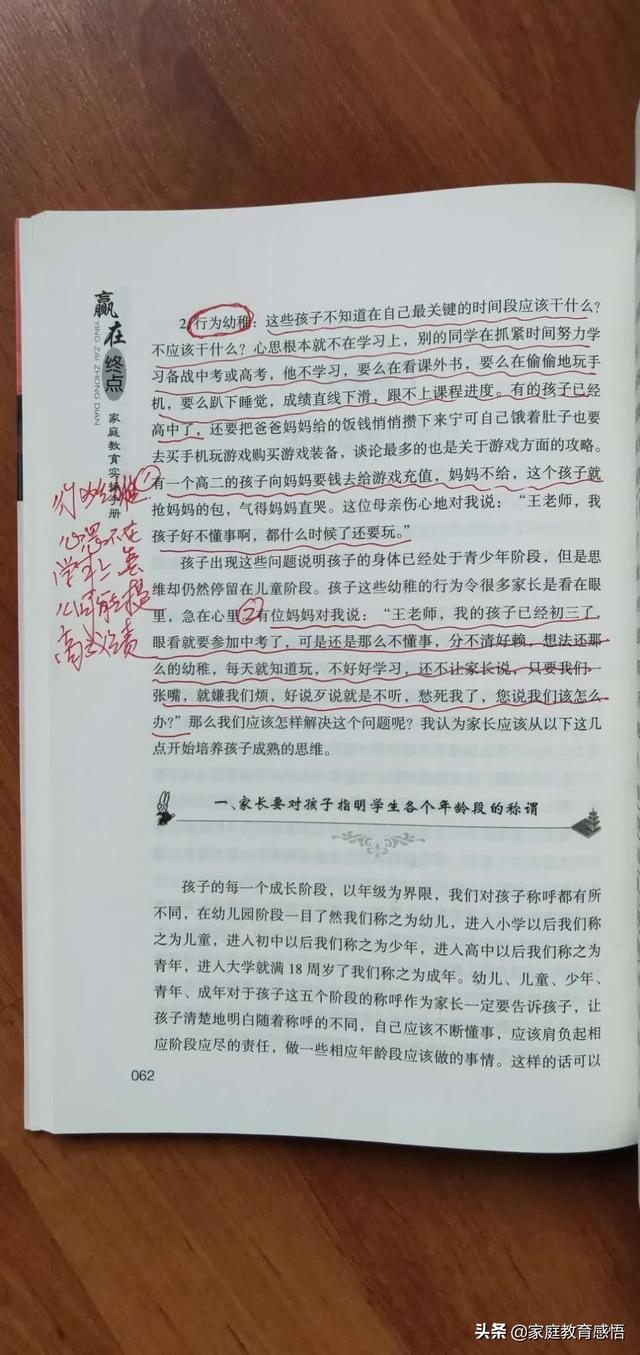 赢在终点
YING ZAI ZHONG DIAN
家庭教育实操手册
2. 行为幼稚：这些孩子不知道在自己最关键的时间段应该干什么？
不应该干什么？心思根本就不在学习上，别的同学在抓紧时间努力学
习备战中考或高考，他不学习，要么在看课外书，要么在偷偷地玩手
机，要么趴下睡觉，成绩直线下滑，跟不上课程进度。有的孩子已经
高中了，还要把爸爸妈妈给的饭钱悄悄攒下来宁可自己饿着肚子也要
去买手机玩游戏购买游戏装备，谈论最多的也是关于游戏方面的攻略。
有一个高二的孩子向妈妈要钱去给游戏充值，妈妈不给，这个孩子就
抢妈妈的包，气得妈妈直哭。这位母亲伤心地对我说：“王老师，我
孩子好不懂事啊，都什么时候了还要玩。”
孩子出现这些问题说明孩子的身体已经处于青少年阶段，但是思
维却仍然停留在儿童阶段。孩子这些幼稚的行为令很多家长是看在眼
里，急在心里②有位妈妈对我说：“王老师，我的孩子已经初三了，
眼看就要参加中考了，可是还是那么不懂事，分不清好赖，想法还那
么的幼稚，每天就知道玩，不好好学习，还不让家长说，只要我们一
张嘴，就嫌我们烦，好说歹说就是不听，愁死我了，您说我们该怎么
办？”那么我们应该怎样解决这个问题呢？我认为家长应该从以下这几
点开始培养孩子成熟的思维。
行为幼稚①
心思不在
学习上
一、家长要对孩子指明学生各个年龄段的称谓
孩子的每一个成长阶段，以年级为界限，我们对孩子称呼都有所
不同，在幼儿园阶段一目了然我们称之为幼儿，进入小学以后我们称
之为儿童，进入初中以后我们称之为少年，进入高中以后我们称之为
青年，进入大学就满 18 周岁了我们称之为成年。幼儿、儿童、少年、
青年、成年对于孩子这五个阶段的称呼作为家长一定要告诉孩子，让
孩子清楚地明白随着称呼的不同，自己应该不断懂事，应该肩负起相
应阶段应尽的责任，做一些相应年龄段应该做的事情。这样的话可以
062
头条 @家庭教育感悟